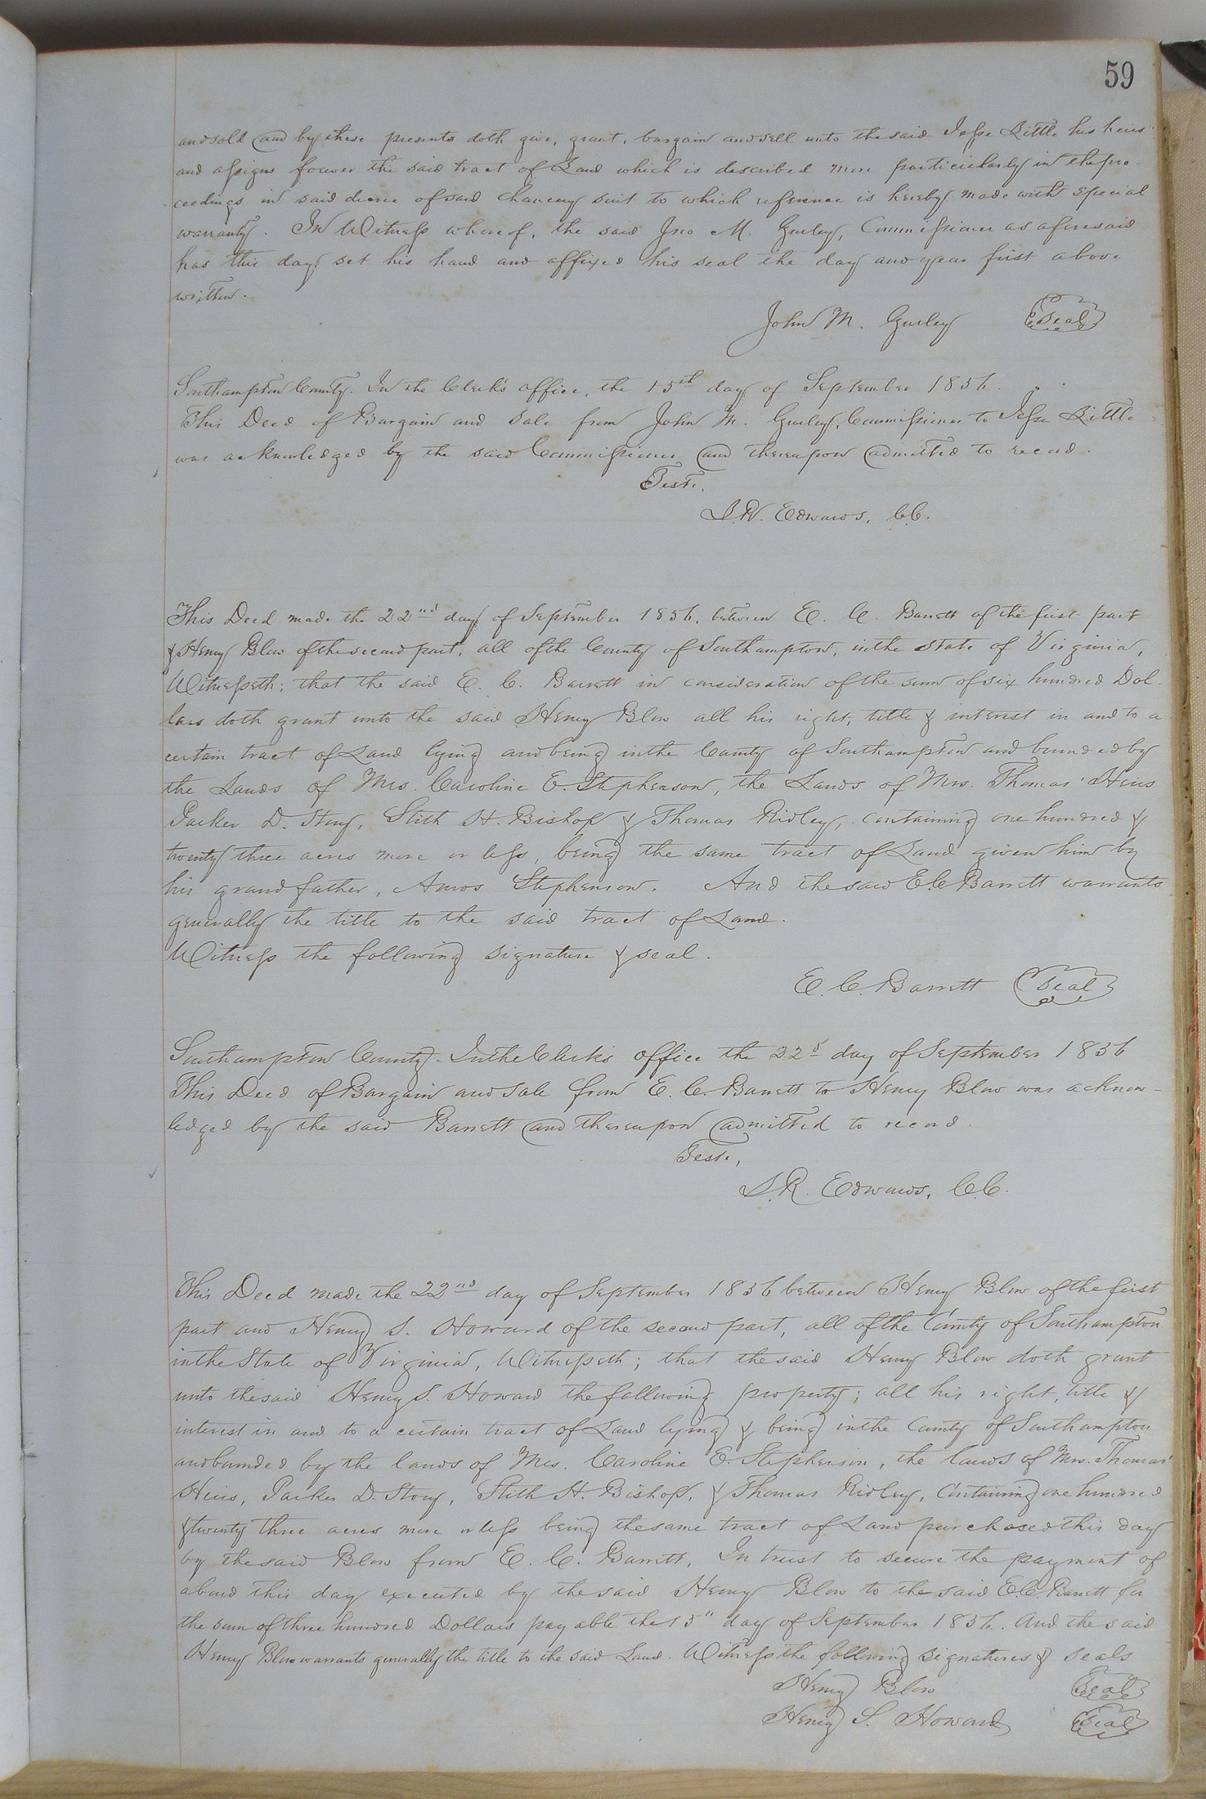 59
and sold and by these presents doth give, grant, bargain and sell unto the said Jesse Little his heirs
and assigns forever the said tract of Land which is described more particularly in the pro-
ceedings in said decree of said chancery suit to which reference is hereby made with special
warranty. In Witness whereof, the said Jno M. Gurley, Commissioner as aforesaid
has this day set his hand and affixed his seal the day and year first above
written.
John M. Gurley Seal
Southampton County. In the Clerk's office, the 15th day of September 1856.
This Deed of Bargain and Sale from John M. Gurley, Commissioner to Jesse Little
was acknowledged by the said Commissioner and thereupon admitted to record.
Teste,
L.R. Edwards, C.C.
This Deed made the 22nd day of September 1856, between E. C. Barrett of the first part
& Henry Blow of the second part, all of the County of Southampton, in the State of Virginia,
Witnesseth; that the said E. C. Barrett in consideration of the sum of six hundred Dol-
lars doth grant unto the said Henry Blow all his right, title & interest in and to a
certain tract of Land lying and being in the County of Southampton and bounded by
the Lands of Mrs. Caroline E. Stephenson, the Lands of Mrs. Thomas' Heirs
Parker D. Story, Stith H. Bishop & Thomas Ridley, containing one hundred &
twenty three acres more or less, being the same tract of Land given him by
his grandfather, Amos Stephenson. And the said E.C. Barrett warrants
generally the title to the said tract of Land.
Witness the following signature & seal.
E. C. Barrett Seal
Southampton County. In the Clerk's office the 22d day of September 1856
This Deed of Bargain and Sale from E. C. Barrett to Henry Blow was acknow-
ledged by the said Barrett and thereupon admitted to record.
Teste,
L.R. Edwards, C.C.
This Deed made the 22nd day of September 1856 between Henry Blow of the first
part and Henry S. Howard of the second part, all of the County of Southampton
in the State of Virginia, Witnesseth; that the said Henry Blow doth grant
unto the said Henry S. Howard the following property; all his right, title &
interest in and to a certain tract of Land lying & being in the County of Southampton
and bounded by the lands of Mrs. Caroline E. Stephenson, the lands of Mrs. Thomas'
Heirs, Parker D. Story, Stith H. Bishop, & Thomas Ridley, Containing one hundred
& twenty three acres more or less being the same tract of Land purchased this day
by the said Blow from E. C. Barrett, In trust to secure the payment of
a bond this day executed by the said Henry Blow to the said E.C. Barrett for
the sum of three hundred Dollars payable the 15" day of September 1856. And the said
Henry Blow warrants generally the title to the said Land. Witness the following signatures & seals
Henry Blow Seal
Henry S. Howard Seal